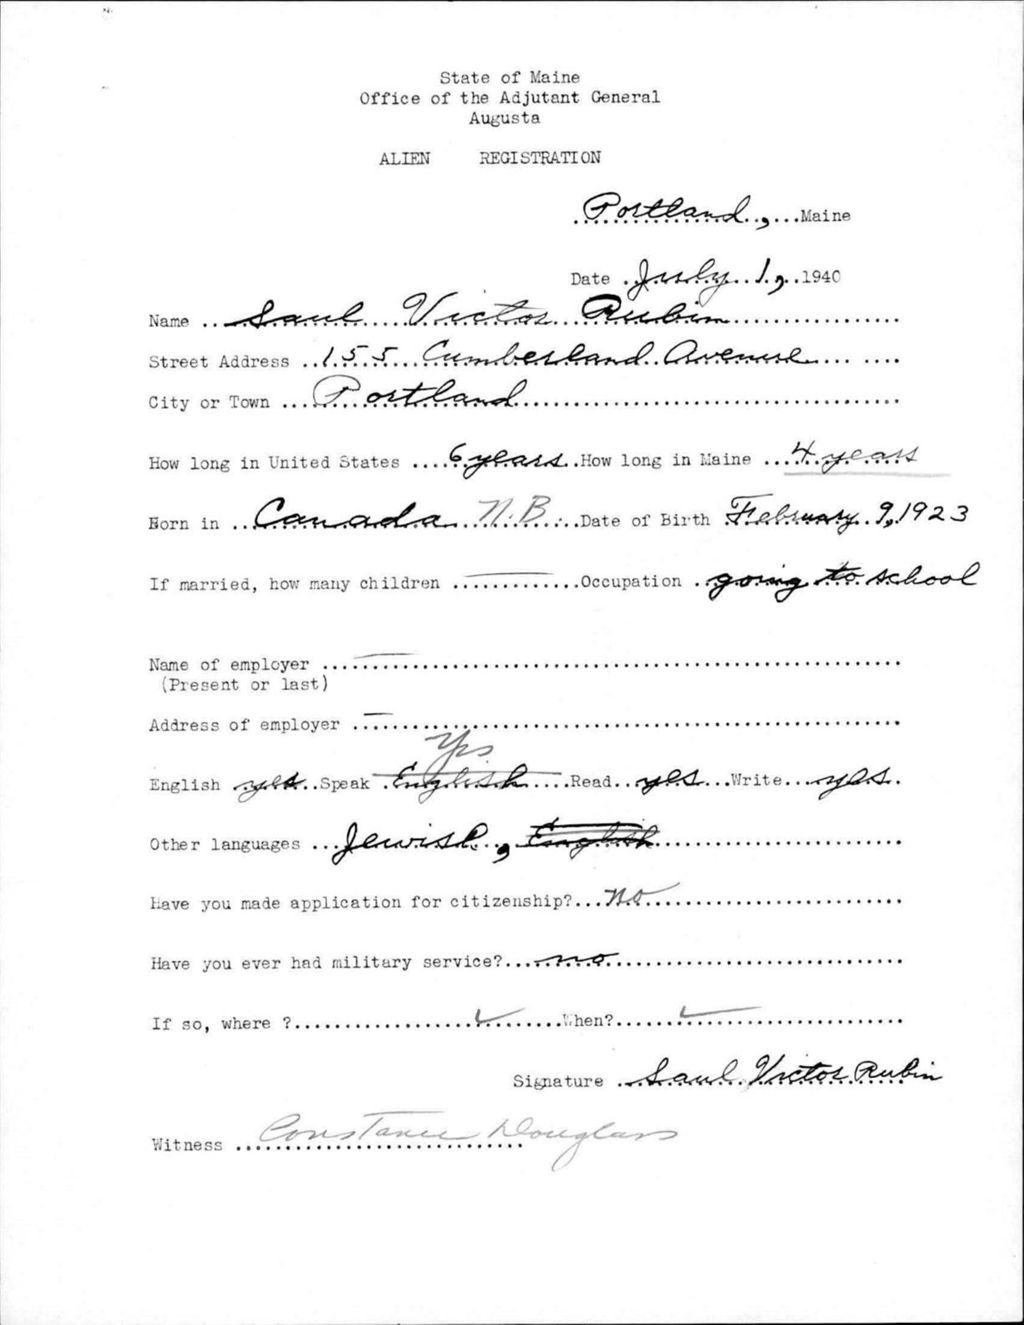 State of Maine
Office of the Adjutant General
Augusta
ALIEN REGISTRATION
Portland, Maine
Date July 1, 1940
Name Saul Victor Rubin
Street Address 155 Cumberland Avenue
City or Town Portland
How long in United States 6 years How long in Maine 4 years
Born in Canada N.B. Date of Birth February 9, 1923
If married, how many children — Occupation going to school
Name of employer —
(Present or last)
Address of employer —
Yes
English yes Speak English Read yes Write yes
Other languages Jewish, English
Have you made application for citizenship? no
Have you ever had military service? no
If so, where ? ✓ When? ✓
Signature Saul Victor Rubin
Witness Constance Douglass